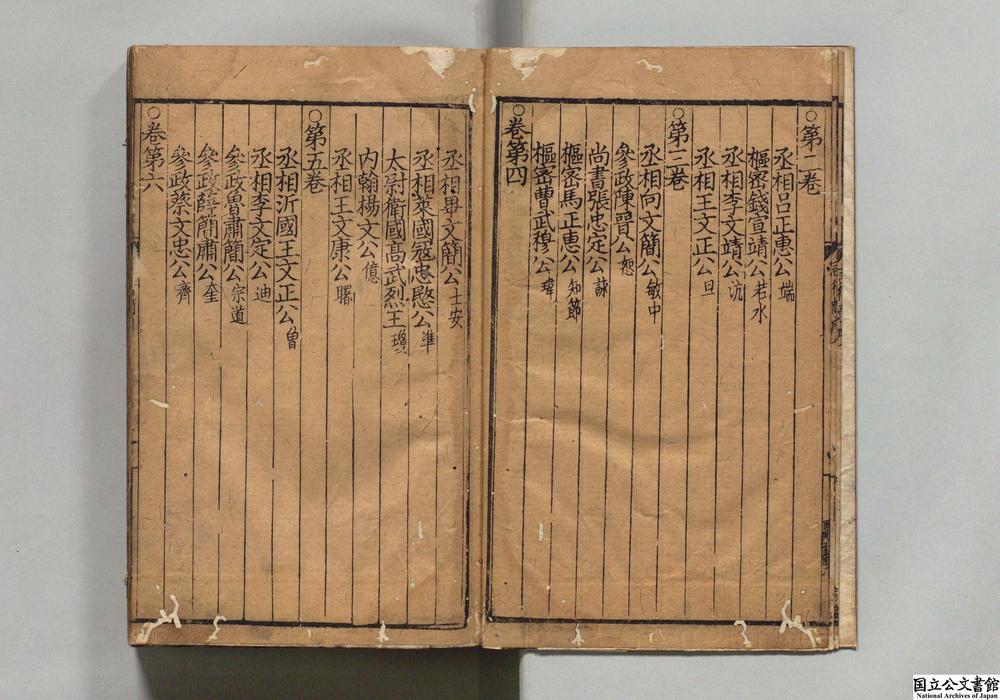 ○第二卷
丞相呂正惠公端
樞密錢宣靖公若水
丞相李文靖公沆
丞相王文正公旦
○第三卷
丞相向文簡公敏中
參政陳晉公恕
尚書張忠定公詠
樞密馬正惠公知節
樞密曹武穆公瑋
○卷第四
丞相畢文簡公士安
丞相萊國寇忠愍公準
太尉衛國高武烈王瓊
內翰楊文公億
丞相王文康公曙
○第五卷
丞相沂國王文正公曾
丞相李文定公迪
參政魯肅簡公宗道
參政薛簡肅公奎
參政蔡文忠公齊
○卷第六
国立公文書館
National Archives of Japan